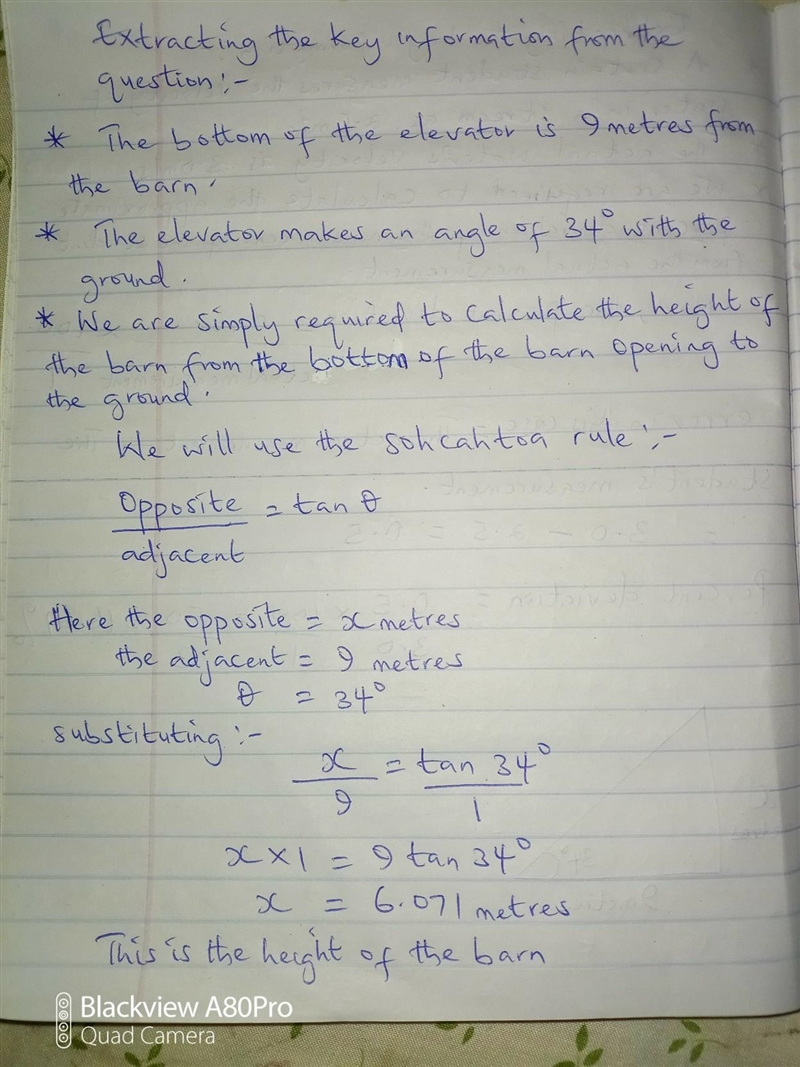 Extracting the key information from the
question:-
* The bottom of the elevator is 9 metres from
the barn.
* The elevator makes an angle of 34° with the
ground.
* We are simply required to calculate the height of
the barn from the bottom of the barn opening to
the ground.
We will use the sohcahtoa rule:-
Opposite = tan θ
adjacent
Here the opposite = x metres
the adjacent = 9 metres
θ = 34°
substituting:-
x = tan 34°
9 1
x × 1 = 9 tan 34°
x = 6.071 metres
This is the height of the barn
Blackview A80Pro
Quad Camera